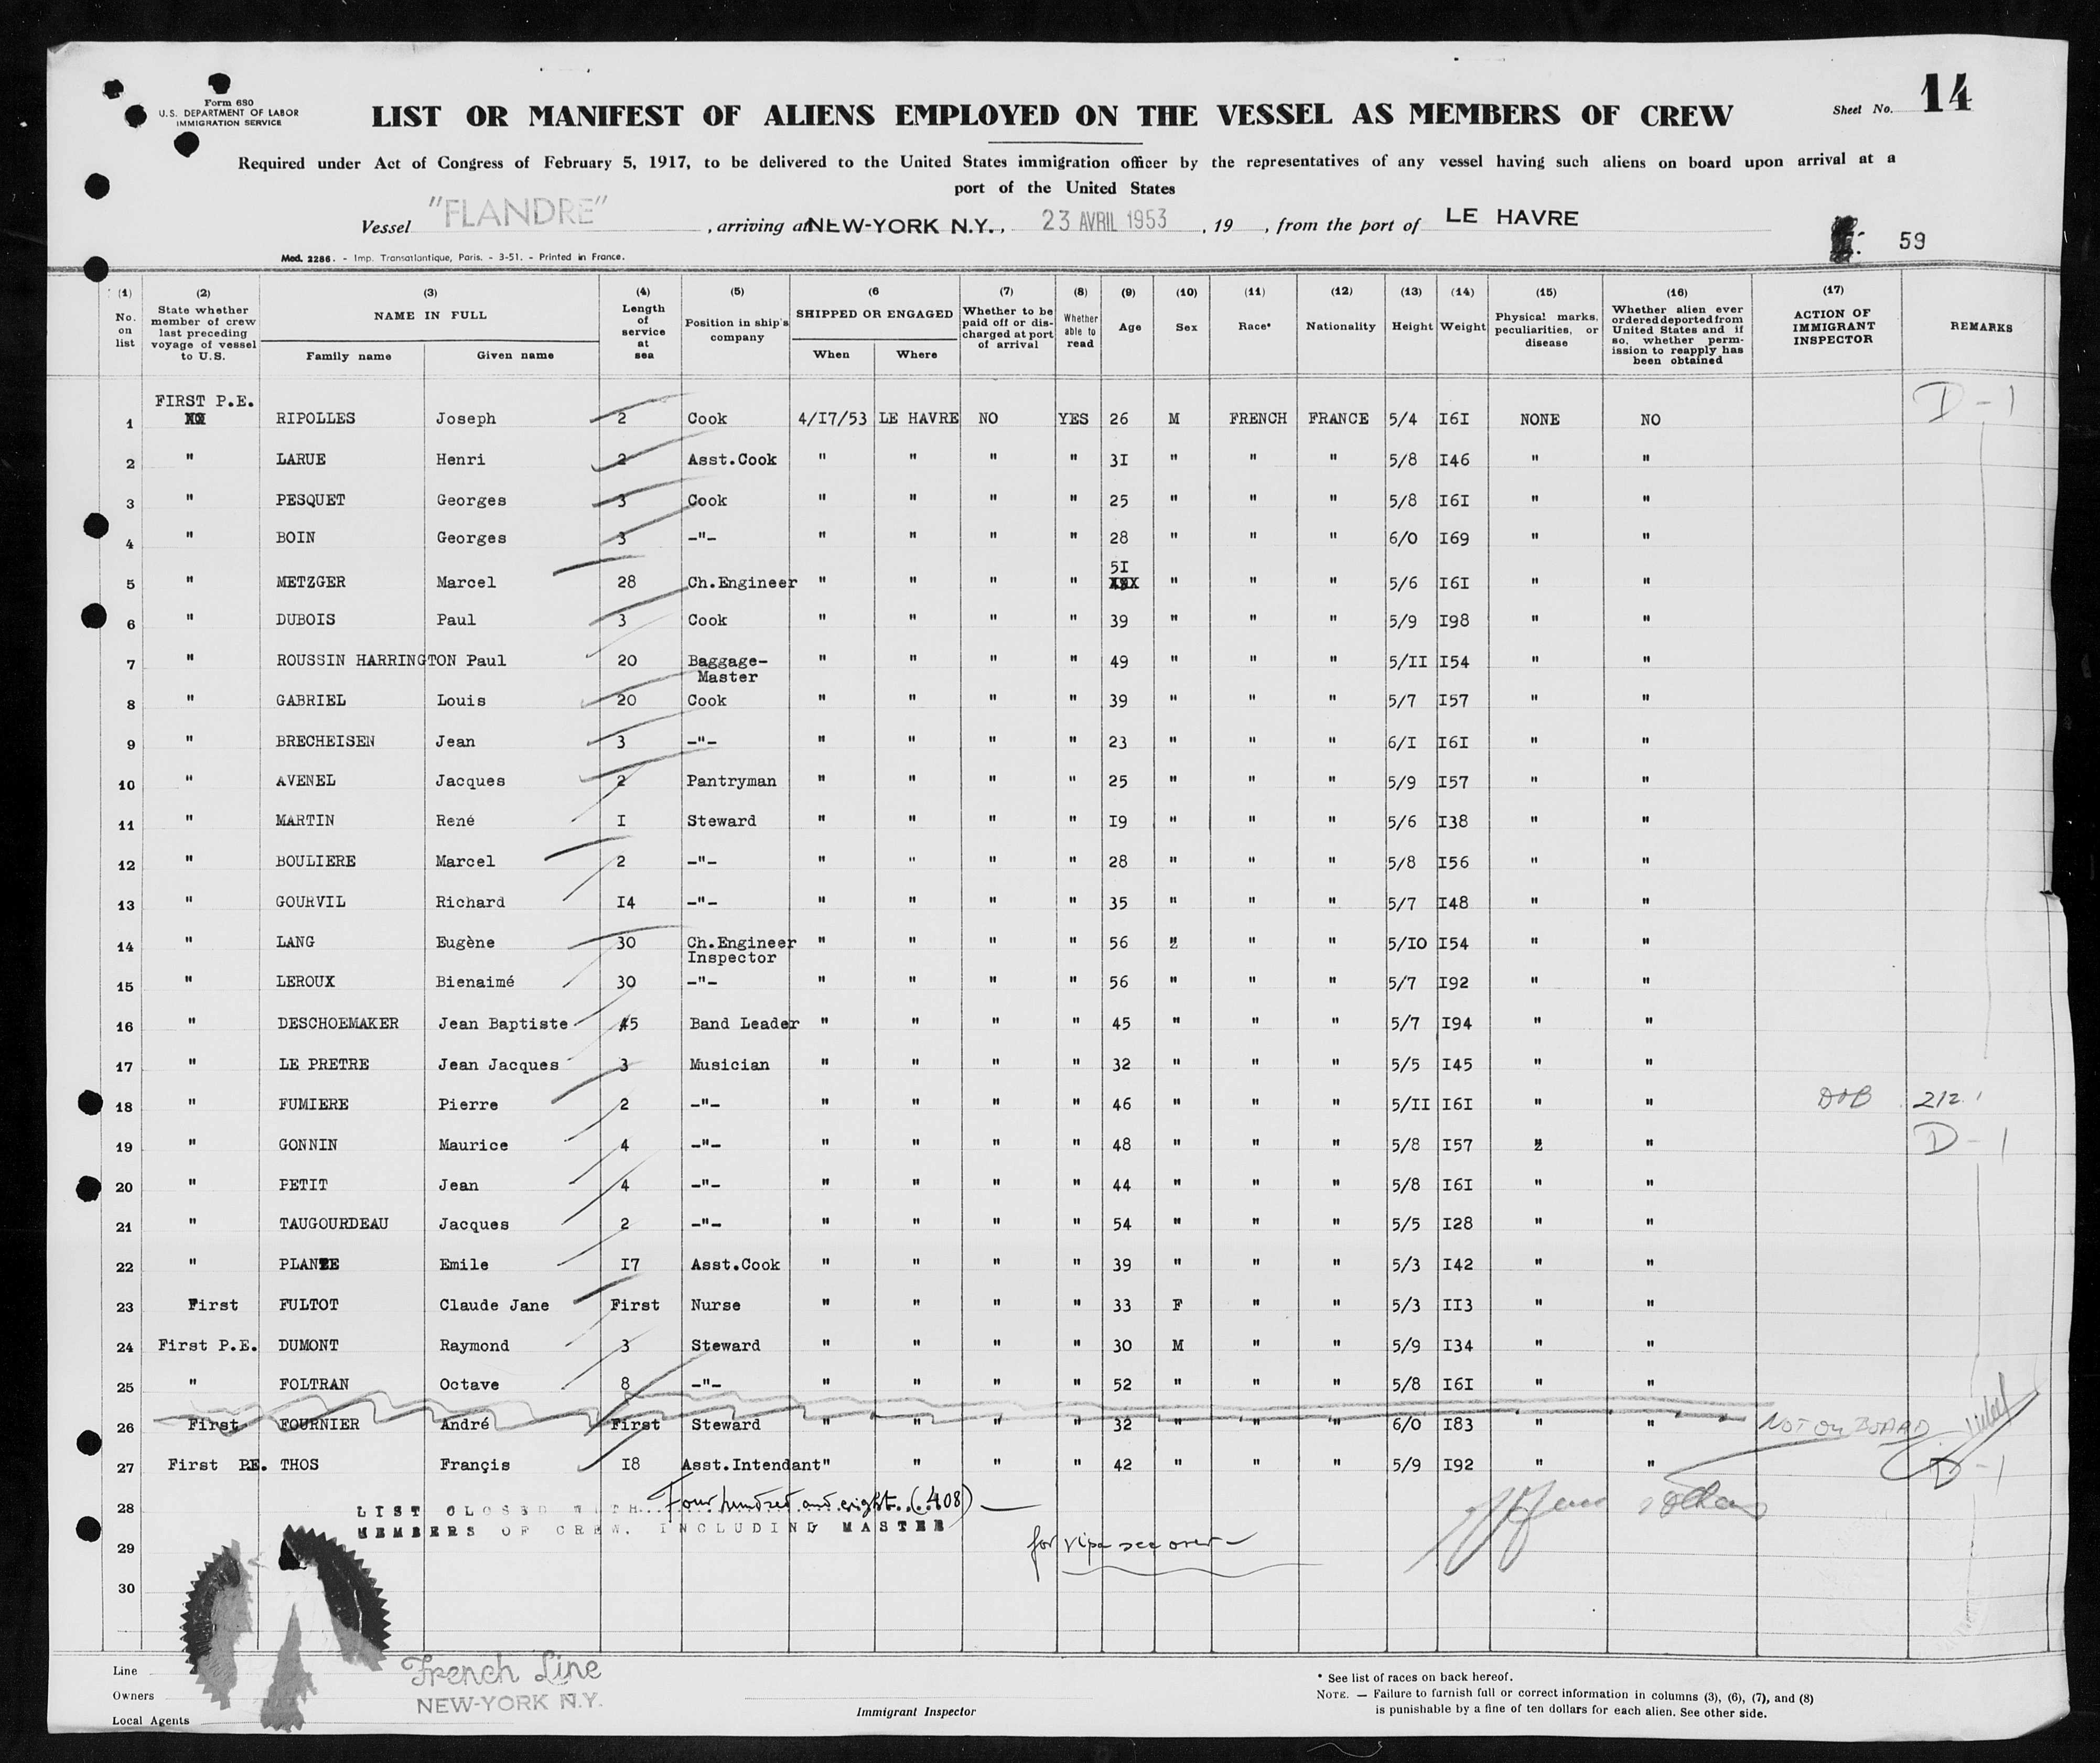 Form 680
U.S. DEPARTMENT OF LABOR
IMMIGRATION SERVICE
LIST OR MANIFEST OF ALIENS EMPLOYED ON THE VESSEL AS MEMBERS OF CREW
Sheet No. 14
Required under Act of Congress of February 5, 1917, to be delivered to the United States immigration officer by the representatives of any vessel having such aliens on board upon arrival at a
port of the United States
Vessel "FLANDRE", arriving at NEW-YORK N.Y., 23 AVRIL 1953, 19 , from the port of LE HAVRE
59
Mod. 2286. - Imp. Transatlantique, Paris. - 3-51. - Printed in France.
(1) No. on list (2) State whether member of crew last preceding voyage of vessel to U.S. (3) NAME IN FULL Family name Given name (4) Length of service at sea (5) Position in ship's company (6 SHIPPED OR ENGAGED When Where (7) Whether to be paid off or discharged at port of arrival (8) Whether able to read (9) Age (10) Sex (11) Race* (12) Nationality (13) Height (14) Weight (15) Physical marks, peculiarities, or disease (16) Whether alien ever ordered deported from United States and if so, whether permission to reapply has been obtained (17) ACTION OF IMMIGRANT INSPECTOR REMARKS
1 FIRST P.E. RIPOLLES Joseph 2 Cook 4/I7/53 LE HAVRE NO YES 26 M FRENCH FRANCE 5/4 I6I NONE NO D-1
2 " LARUE Henri 2 Asst.Cook " " " " 3I " " " 5/8 I46 " "
3 " PESQUET Georges 3 Cook " " " " 25 " " " 5/8 I6I " "
4 " BOIN Georges 3 -"- " " " " 28 " " " 6/0 I69 " "
5 " METZGER Marcel 28 Ch.Engineer " " " " 5I " " " 5/6 I6I " "
6 " DUBOIS Paul 3 Cook " " " " 39 " " " 5/9 I98 " "
7 " ROUSSIN HARRINGTON Paul 20 Baggage-Master " " " " 49 " " " 5/II I54 " "
8 " GABRIEL Louis 20 Cook " " " " 39 " " " 5/7 I57 " "
9 " BRECHEISEN Jean 3 -"- " " " " 23 " " " 6/I I6I " "
10 " AVENEL Jacques 2 Pantryman " " " " 25 " " " 5/9 I57 " "
11 " MARTIN René I Steward " " " " I9 " " " 5/6 I38 " "
12 " BOULIERE Marcel 2 -"- " " " " 28 " " " 5/8 I56 " "
13 " GOURVIL Richard I4 -"- " " " " 35 " " " 5/7 I48 " "
14 " LANG Eugène 30 Ch.Engineer Inspector " " " " 56 " " " 5/IO I54 " "
15 " LEROUX Bienaimé 30 -"- " " " " 56 " " " 5/7 I92 " "
16 " DESCHOEMAKER Jean Baptiste 45 Band Leader " " " " 45 " " " 5/7 I94 " "
17 " LE PRETRE Jean Jacques 3 Musician " " " " 32 " " " 5/5 I45 " "
18 " FUMIERE Pierre 2 -"- " " " " 46 " " " 5/II I6I " " DOB 212.1
19 " GONNIN Maurice 4 -"- " " " " 48 " " " 5/8 I57 " " D-1
20 " PETIT Jean 4 -"- " " " " 44 " " " 5/8 I6I " "
21 " TAUGOURDEAU Jacques 2 -"- " " " " 54 " " " 5/5 I28 " "
22 " PLANTE Emile I7 Asst.Cook " " " " 39 " " " 5/3 I42 " "
23 First FULTOT Claude Jane First Nurse " " " " 33 F " " 5/3 II3 " "
24 First P.E. DUMONT Raymond 3 Steward " " " " 30 M " " 5/9 I34 " "
25 " FOLTRAN Octave 8 -"- " " " " 52 " " " 5/8 I6I " "
26 First FOURNIER André First Steward " " " " 32 " " " 6/0 I83 " " NOT ON BOARD
27 First P.E. THOS Françis I8 Asst.Intendant " " " " 42 " " " 5/9 I92 " " D-1
28 LIST CLOSED WITH Four hundred and eight (408)
MEMBERS OF CREW, INCLUDING MASTER
29 for visa see over
30
Line
Owners
Local Agents
French Line
NEW-YORK N.Y.
Immigrant Inspector
* See list of races on back hereof.
NOTE. — Failure to furnish full or correct information in columns (3), (6), (7), and (8)
is punishable by a fine of ten dollars for each alien. See other side.